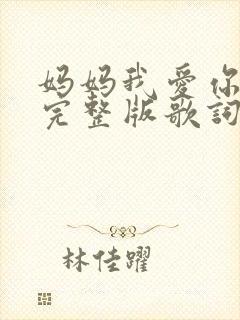 妈妈我爱你
完整版歌詞
林佳躍